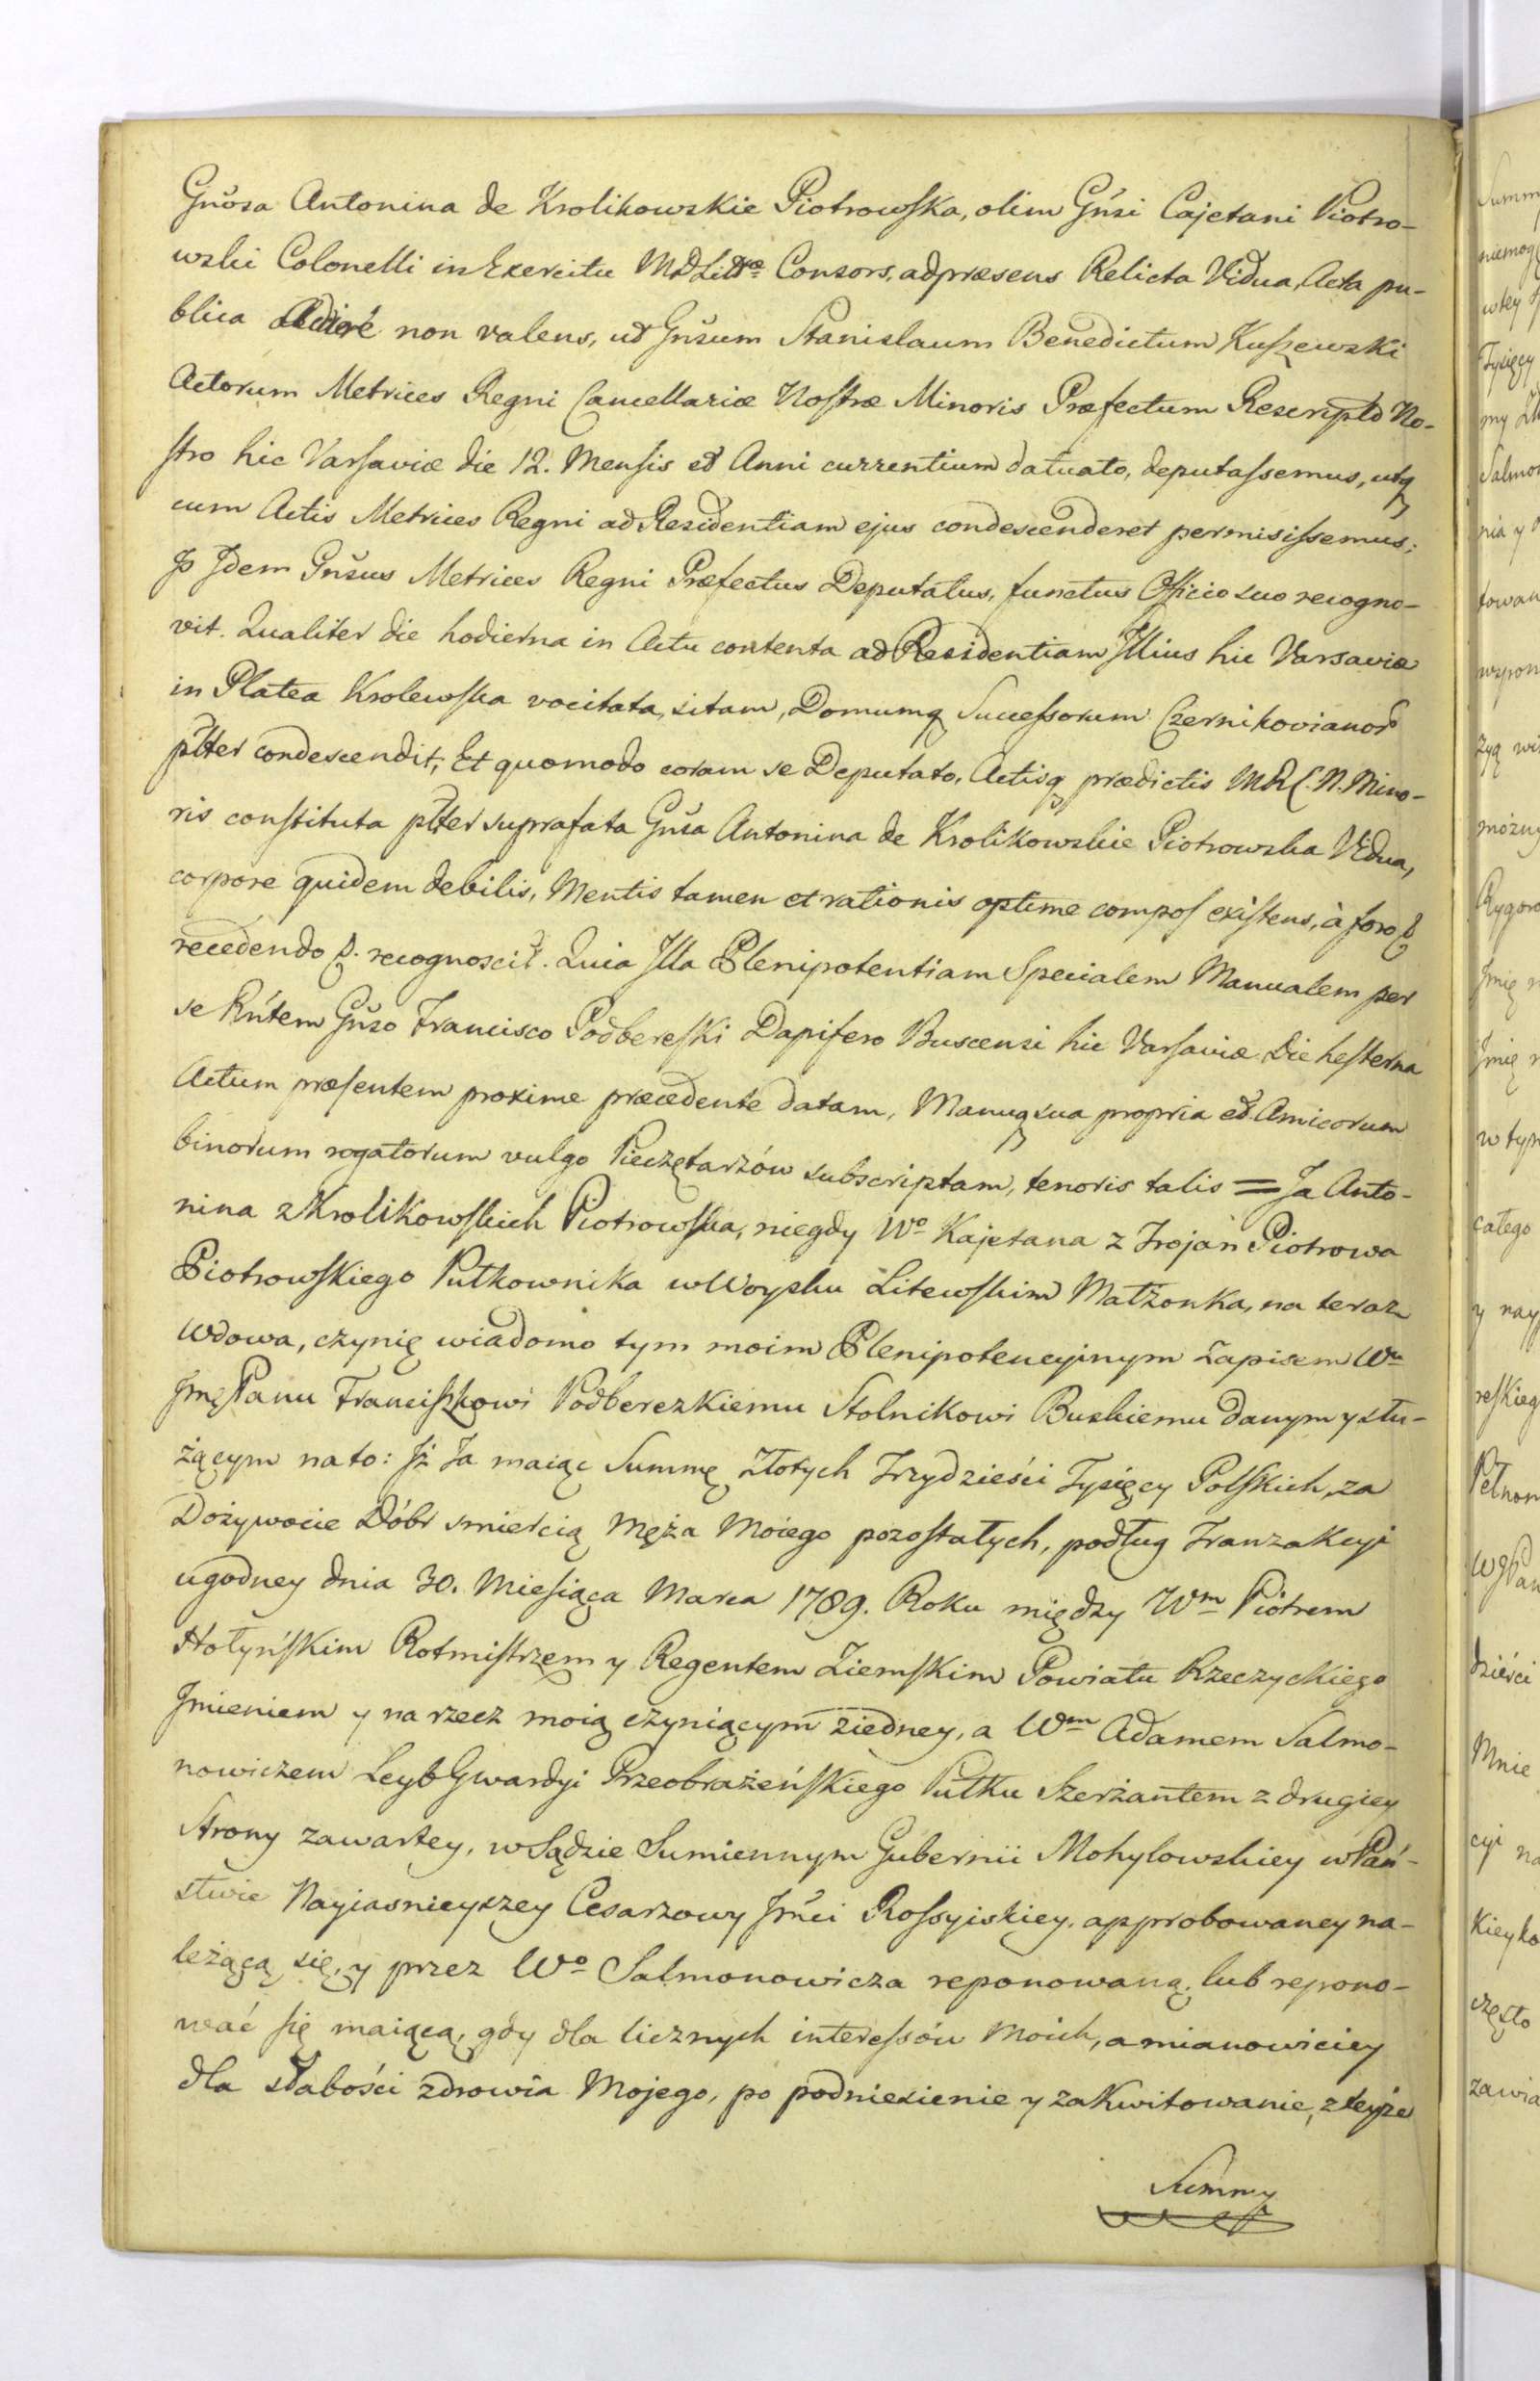 Gnõsa Antonina de Krolikowskie Piotrowska, olim Gñsi Cajetani Piotro-
wski Colonelli in Exercitu MDLittæ Consors, ad præsens Relicta Vidua, Acta pu-
blica adire non valens, ut Gnõsum Stanislaum Benedictum Kuszewski
Actorum Metrices Regni Cancellariæ Nostræ Minoris Præfectum Rescripto No-
stro hic Varsaviæ die 12. Mensis et Anni currentium datuato, deputassemus, utq
cum Actis Metrices Regni ad Residentiam ejus condescenderet permisissemus;
Idem Gnõsus Metrices Regni Præfectus Deputatus, functus Officio suo recogno-
vit. Qualiter die hodierna in Actu contenta ad Residentiam Illius hic Varsaviæ
in Platea Krolewska vocitata, sitam, Domumq Successorum Czernikovianor
plter condescendit, Et quomodo coram se Deputato, Actisq prædictis MRC. N. Mino-
ris constituta plter suprafata Gnõsa Antonina de Krolikowskie Piotrowska Vidua,
corpore quidem debilis, Mentis tamen et rationis optime compos existens, à foro
recedendo recognoscit. Quia Illa Plenipotentiam Specialem Manualem per
se Rñtem Gnõso Francisco Podbereski Dapifero Buscensi hic Varsaviæ Die hesterna
Actum præsentem proxime præcedente datam, Manuq sua propria et Amicorum
binorum rogatorum vulgo Pieczętarzów subscriptam, tenoris talis = Ja Anto-
nina z Krolikowskich Piotrowska, niegdy Wo Kajetana z Trojan Piotrowa
Piotrowskiego Pułkownika w Woysku Litewskim Małżonka, na teraz
Wdowa, czynię wiadomo tym moim Plenipotencyjnym Zapisem Wu
Jmę Panu Franciszkowi Podberezkiemu Stolnikowi Buskiemu danym y słu-
żącym na to: Jż Ja maiąc Summę Złotych Trzydzieści Tysięcy Polskich, za
Dożywocie Dóbr smiercią Męża Moiego pozostałych, podług Tranzakcyi
ugodney dnia 30. Miesiąca Marca 1789. Roku między Wm Piotrem
Hołyńskim Rotmistrzem y Regentem Ziemskim Powiatu Rzeczyckiego
Jmieniem y na rzecz moią czyniącym ziedney, a Wm Adamem Salmo-
nowiczem Leyb Gwardyi Przeobrażeńskiego Pułku Szerżantem z drugiey
Strony zawartey, w Sądzie Sumiennym Gubernii Mohylowskiey w Pań-
stwie Nayiasnieyszey Cesarzowy Jm̃ci Rossyiskiey, approbowaney na-
leżącą się, y przez Wo Salmonowicza reponowaną, lub repono-
wać się maiącą, gdy dla licznych interessów Moich, a mianowiciey
dla słabości zdrowia Mojego, po podniesienie y zakwitowanie, z teyże
Summy